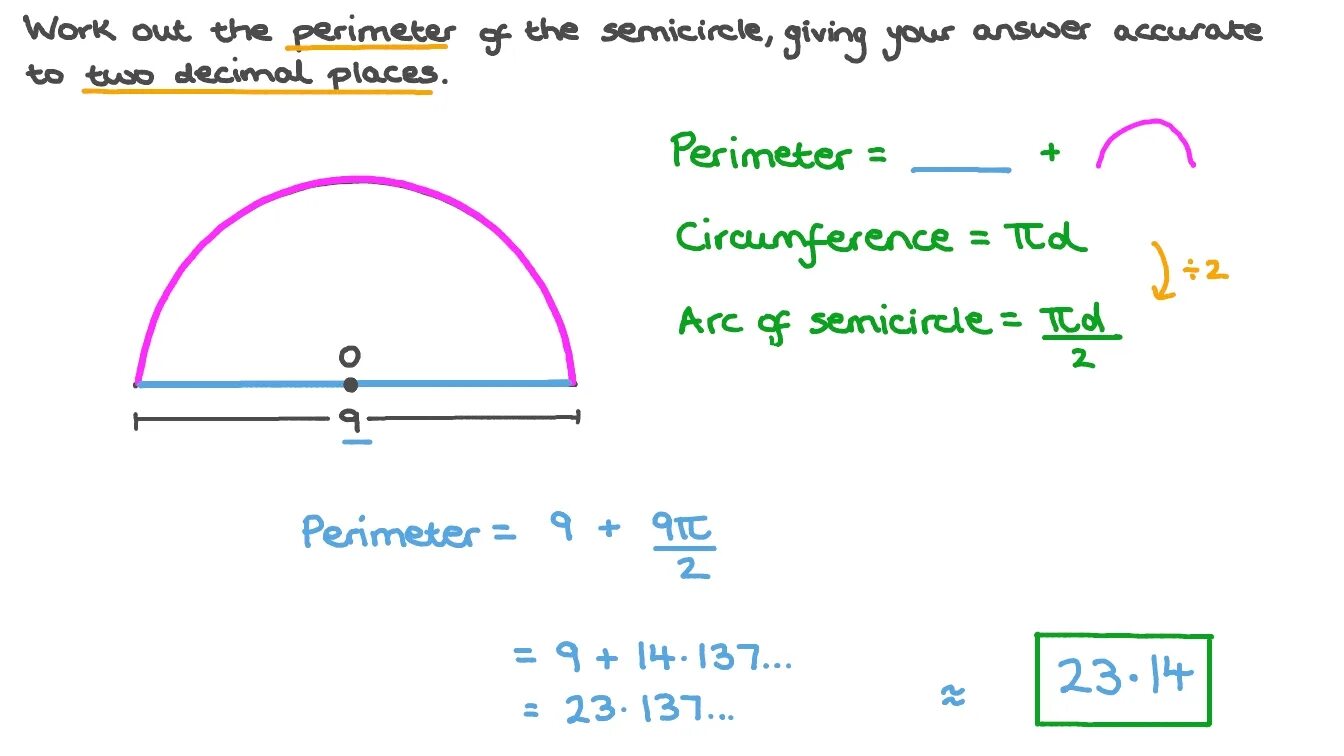 Work out the perimeter of the semicircle, giving your answer accurate
to two decimal places.
Perimeter = ___ +
Circumference = πd
÷2
Arc of semicircle = πd/2
O
9
Perimeter = 9 + 9π/2
= 9 + 14·137...
= 23·137...
≈ 23·14